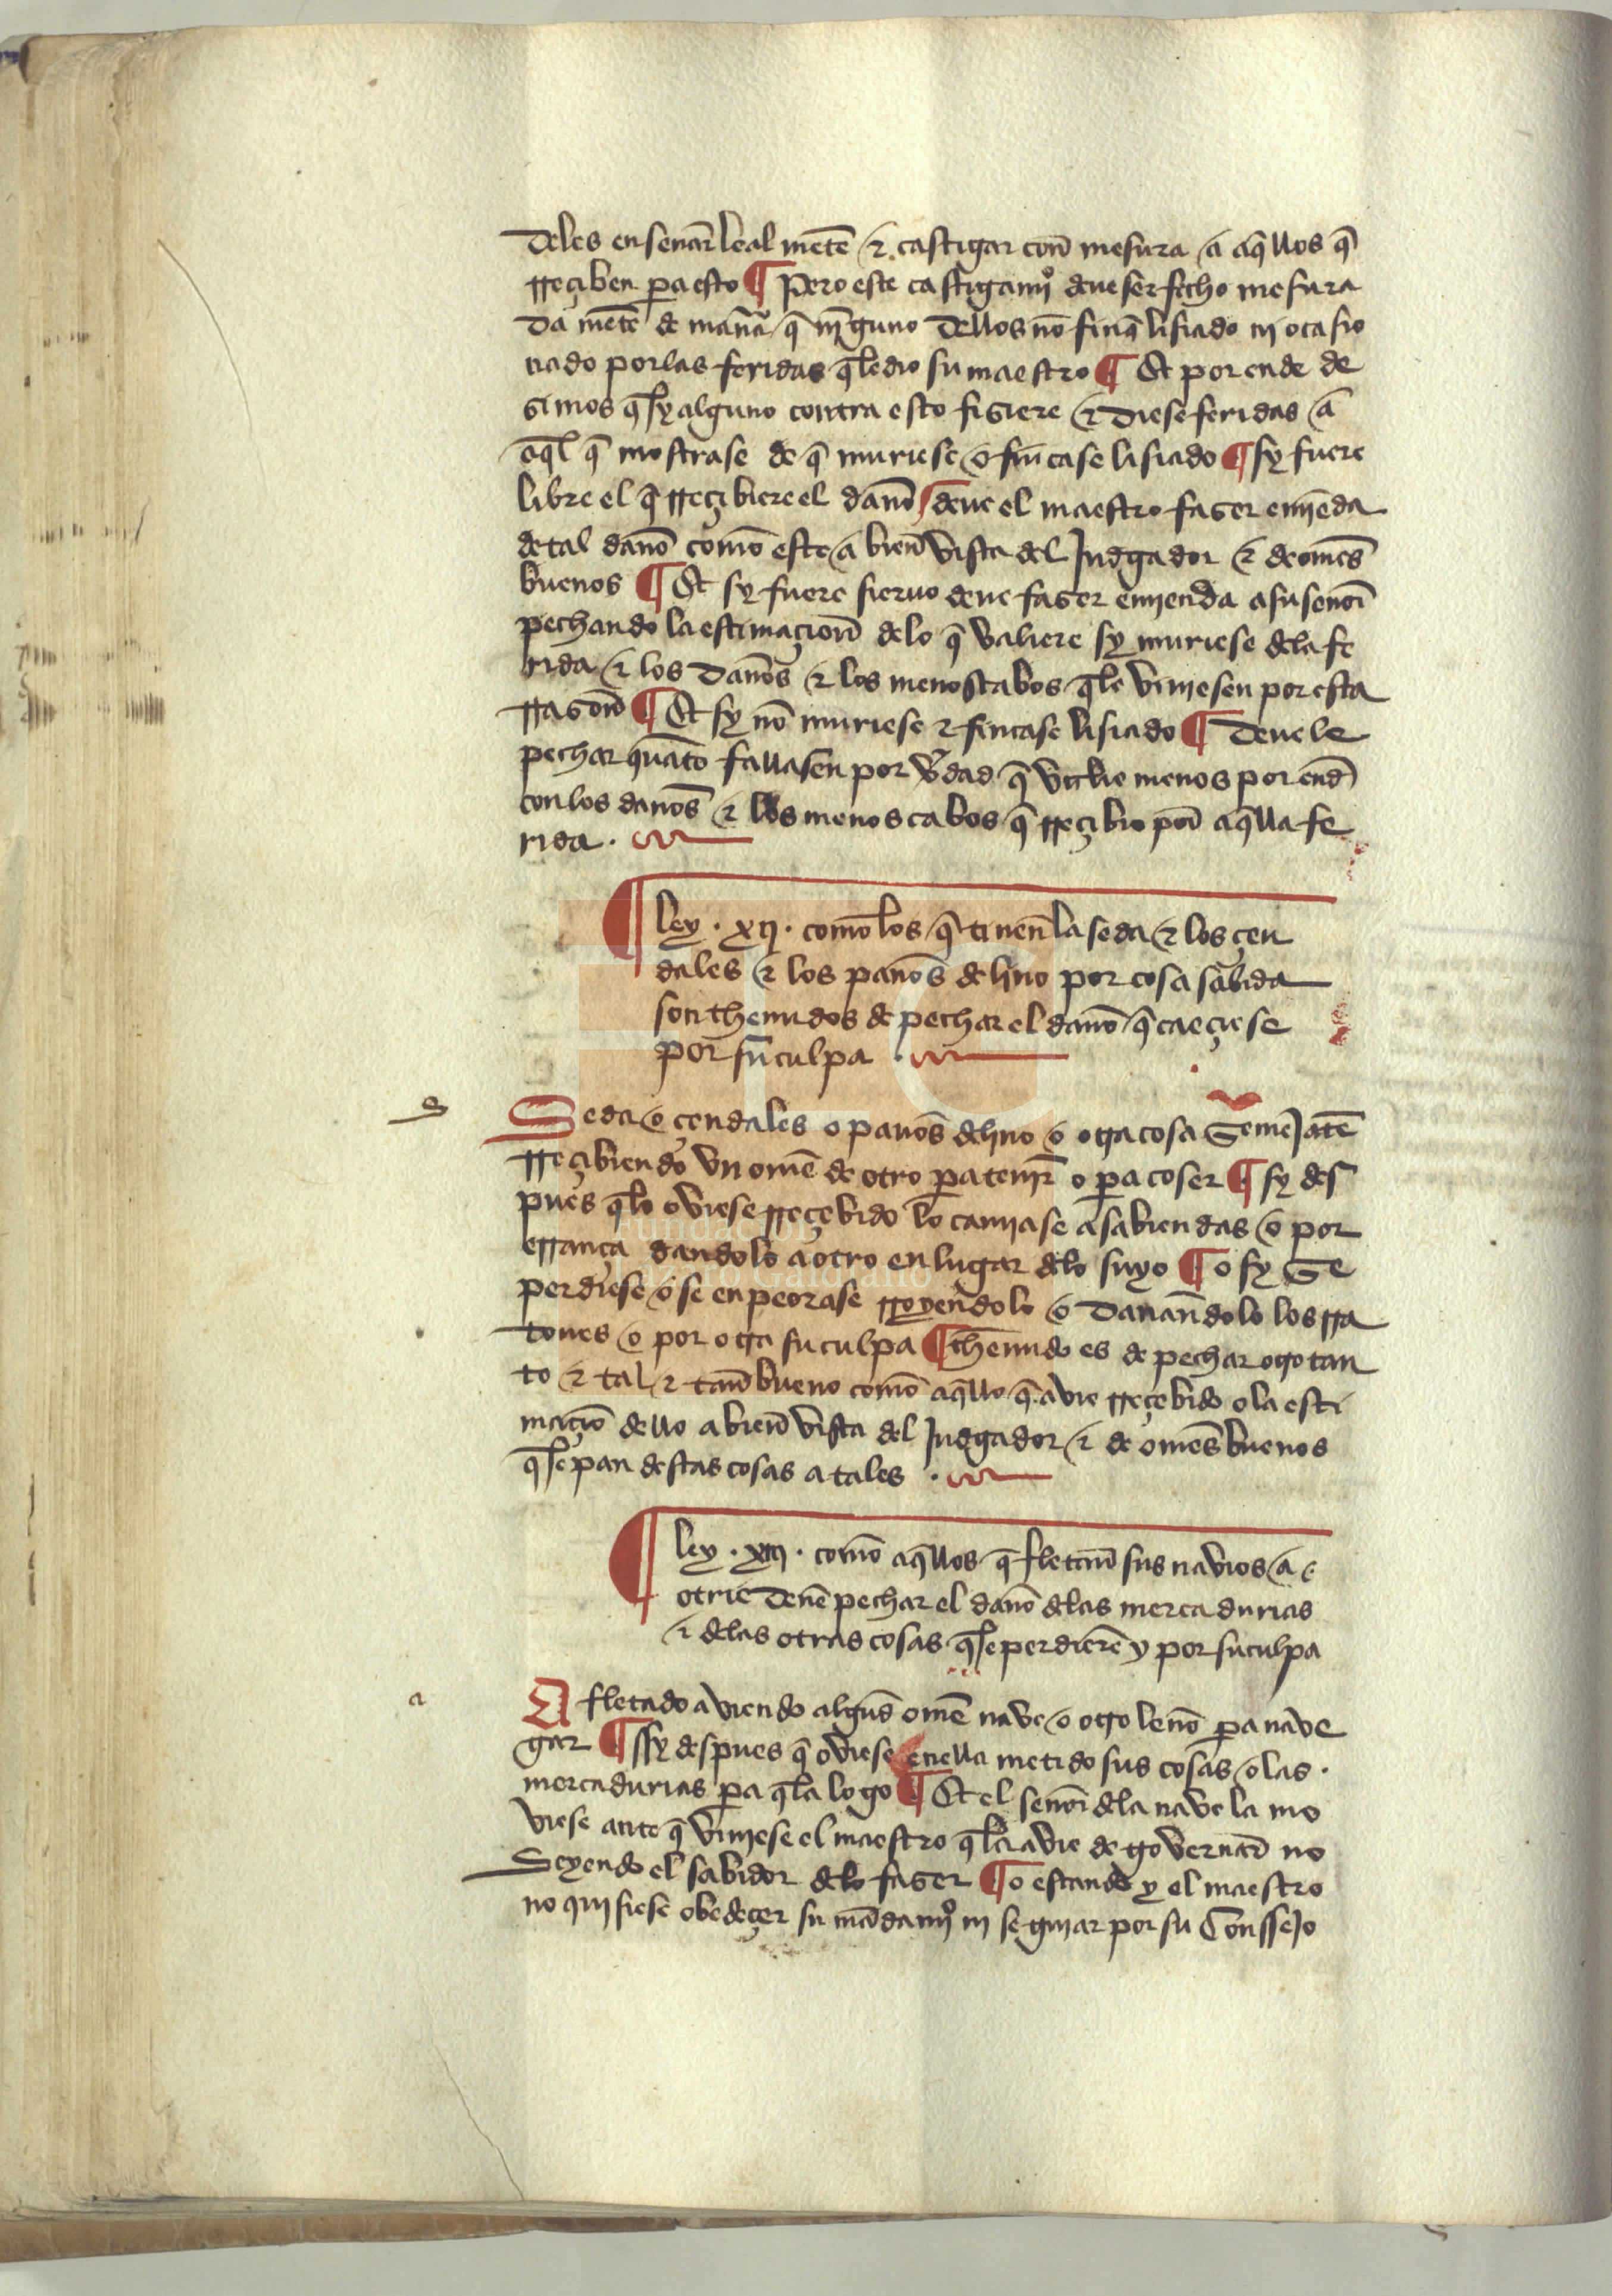 deles ensenar̄ leal mēte & castigar con̄ mesura a aq̄llos q̄
rreçiben ꝑa esto ¶ Pero este castigamj̊ deue ser fecho mesura
da mēte de man̄a q̄ nīguno dellos nō finq̄ lisiado nj ocasio
nado por las feridas q̄ le dio su maestro ¶ Et por ende de
zimos q̄ sy alguno contra esto fiziere & diese feridas a
aq̄l q̄ mostrase de q̄ muriese o fincase lisiado ¶ sy fuere
libre el q̄ rreçibiere el dan̄o ¶ deue el maestro fazer emjēda
de tal dan̄o comō este a bien̄ vista del Judgador & de omēs
buenos ¶ Et sy fuere sieruo deue fazer emjenda a su senor̄
pechando la estimaçion̄ de lo q̄ valiere sy muriese dela fe
rida & los dan̄os & los menoscabos q̄ le vinjesen por esta
rrazon̄ ¶ Et sy nō muriese & fincase lisiado ¶ deuele
pechar quāto fallasen por v̄dad q̄ valie menos por end̄
con los dan̄os & los menoscabos q̄ rreçibio por̄ aq̄lla fe
rida .
¶ ley . xij . comō los q̄ tinen̄ la seda & los çen
dales & los pan̄os de lino por cosa sabida
son thenudos de pechar el dan̄o q̄ caeçiese
por su culpa .
Seda o çendales o pan̄os de lino o otra cosa semejāte
rreçibiendo vn omē de otro ꝑa tenir̄ o ꝑa coser ¶ sy des
pues q̄ lo oviese rreçebido lo camjase a sabiendas o por
erranca dandolo a otro en lugar delo suyo ¶ o sy se
perdiese o se enpeorase rroyen̄dolo o danan̄dolo los rra
tones o por otra su culpa ¶ thenudo es de pechar otro tan
to & tal & tan̄ bueno comō aq̄llo q̄ avie rreçebido o la esti
maçiō dello a bien̄ vista del Judgador & de omēs buenos
q̄ sepan destas cosas atales .
¶ ley . xiij . comō aq̄llos q̄ fletan̄ sus navios a
otrie deuē pechar el dan̄o delas mercadurias
& delas otras cosas q̄ se perdierē y por su culpa
A fletado aviendo algun̄ omē nave o otro len̄o ꝑa nave
gar ¶ sy despues q̄ oviese en ella metido sus cosas o las
mercadurias ꝑa q̄ la logo ¶ Et el senor̄ dela nave la mo
viese ante q̄ vinjese el maestro q̄ la avie de governar̄ no
seyendo el sabidor delo fazer ¶ o estando y el maestro
no quisiese obedeçer su mādamj̊ nj se guiar por su Conssejo